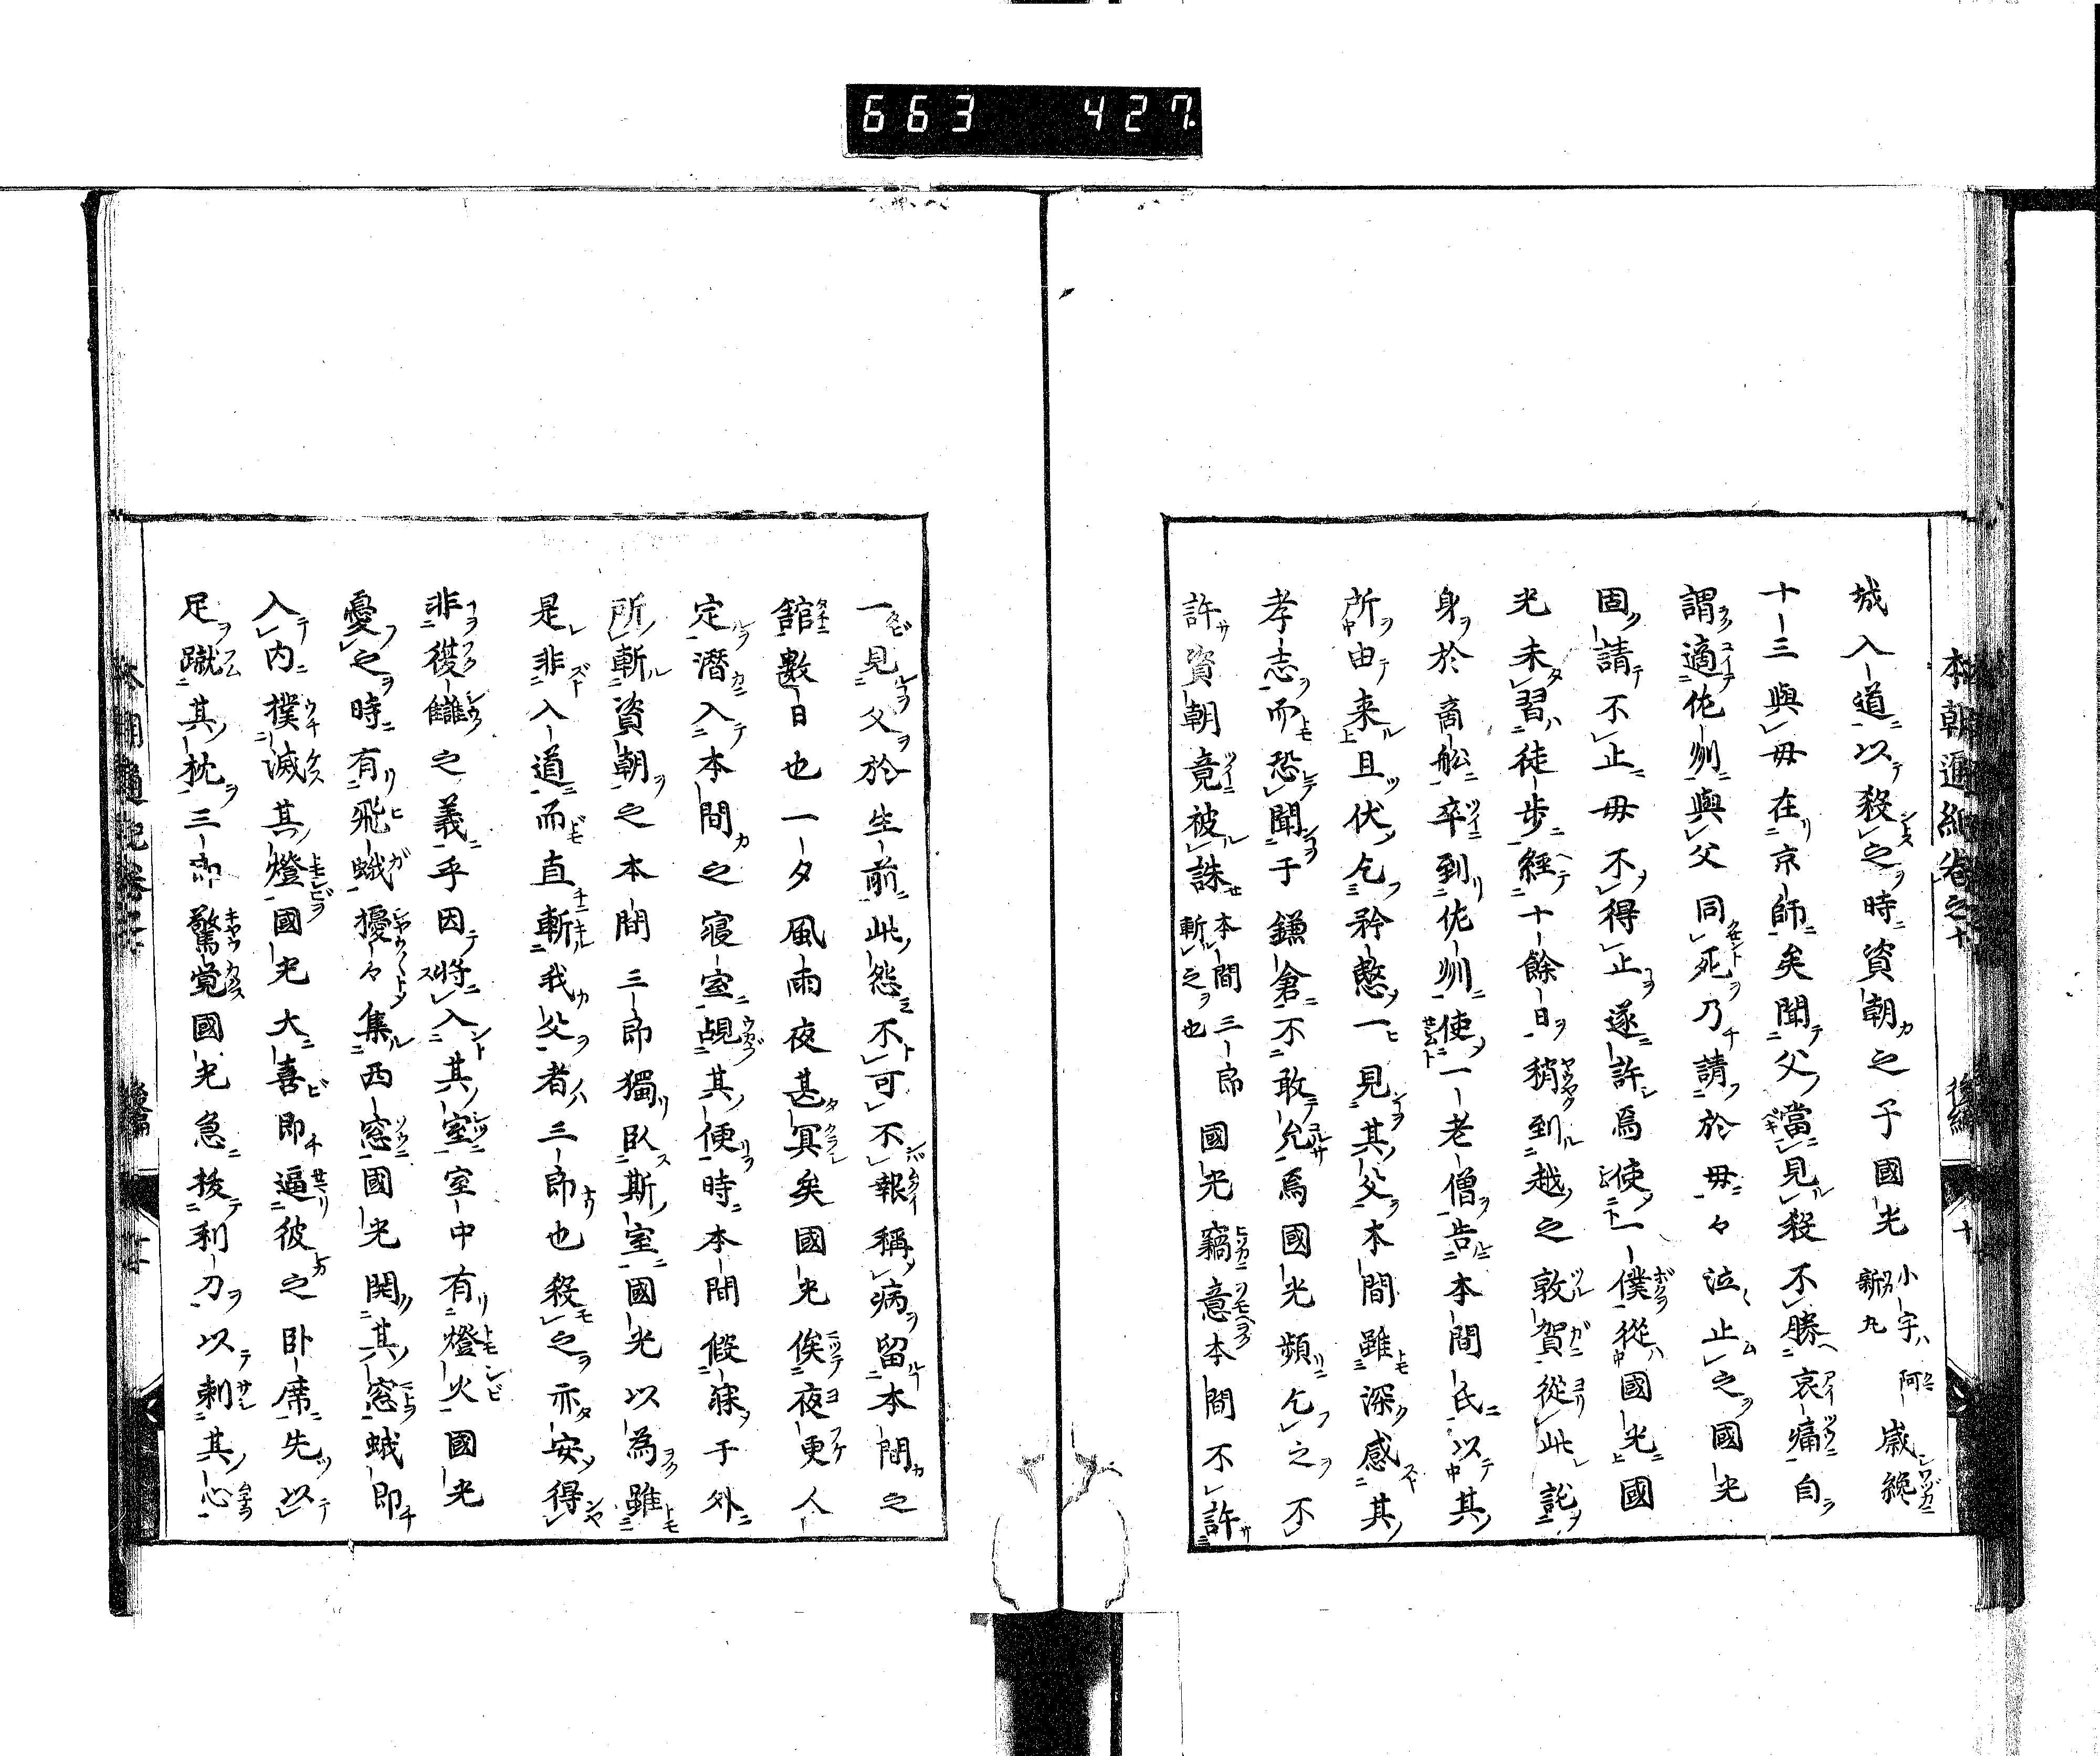 663 427.
本朝通紀卷之十 後編 十
城入道以殺之時資朝之子國光小字阿新丸歳纔
十三與母在京師矣聞父當見殺不勝哀痛自
謂適佐州與父同死乃請於母々泣止之國光
固請不止母不得止遂許焉使一僕從國光國
光未習徒步經十餘日稍到越之敦賀從此託
身於商舩卒到佐州使一老僧告本間氏以其
所由来且伏乞矜愍一見其父本間雖深感其
孝志而恐聞于鎌倉不敢允焉國光頻乞之不
許資朝竟被誅本間三郎斬之也國光竊意本間不許
一見父於生前此怨不可不報稱病留本間之
館數日也一夕風雨夜甚冥矣國光俟夜更人
定潜入本間之寝室覘其便時本間假寐于外
所斬資朝之本間三郎獨臥斯室國光以為雖
是非入道而直斬我父者三郎也殺之亦安得
非復讎之義乎因将入其室室中有燈火國光
憂之時有飛蛾擾々集西窓國光開其窓蛾即
入内撲滅其燈國光大喜即逼彼之卧席先以
足蹴其枕三郎驚覚國光急拔利刀以刺其心
本朝通紀卷之十 後編